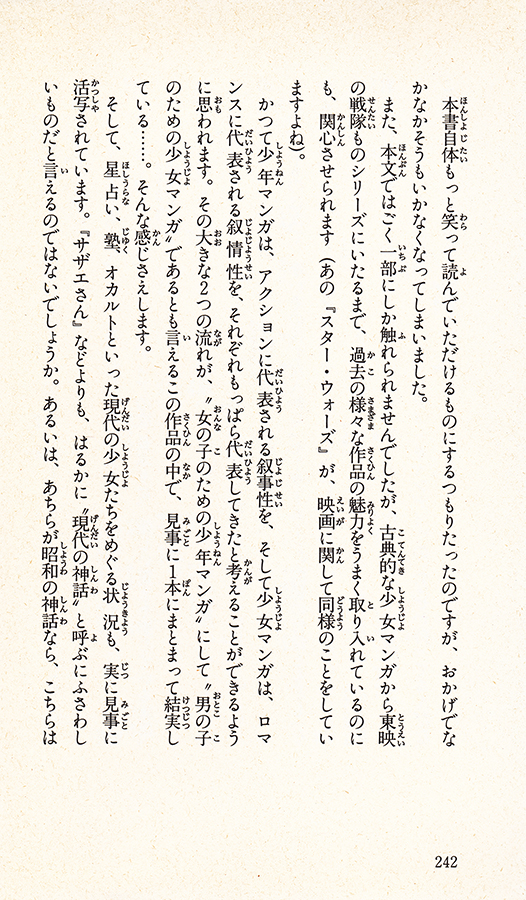 本書自体もっと笑って読んでいただけるものにするつもりたったのですが、おかげでな
かなかそうもいかなくなってしまいました。
また、本文ではごく一部にしか触れられませんでしたが、古典的な少女マンガから東映
の戦隊ものシリーズにいたるまで、過去の様々な作品の魅力をうまく取り入れているのに
も、関心させられます（あの『スター・ウォーズ』が、映画に関して同様のことをしてい
ますよね）。
かつて少年マンガは、アクションに代表される叙事性を、そして少女マンガは、ロマ
ンスに代表される叙情性を、それぞれもっぱら代表してきたと考えることができるよう
に思われます。その大きな2つの流れが、〝女の子のための少年マンガ〟にして〝男の子
のための少女マンガ〟であるとも言えるこの作品の中で、見事に1本にまとまって結実し
ている……。そんな感じさえします。
そして、星占い、塾、オカルトといった現代の少女たちをめぐる状況も、実に見事に
活写されています。『サザエさん』などよりも、はるかに〝現代の神話〟と呼ぶにふさわし
いものだと言えるのではないでしょうか。あるいは、あちらが昭和の神話なら、こちらは
242